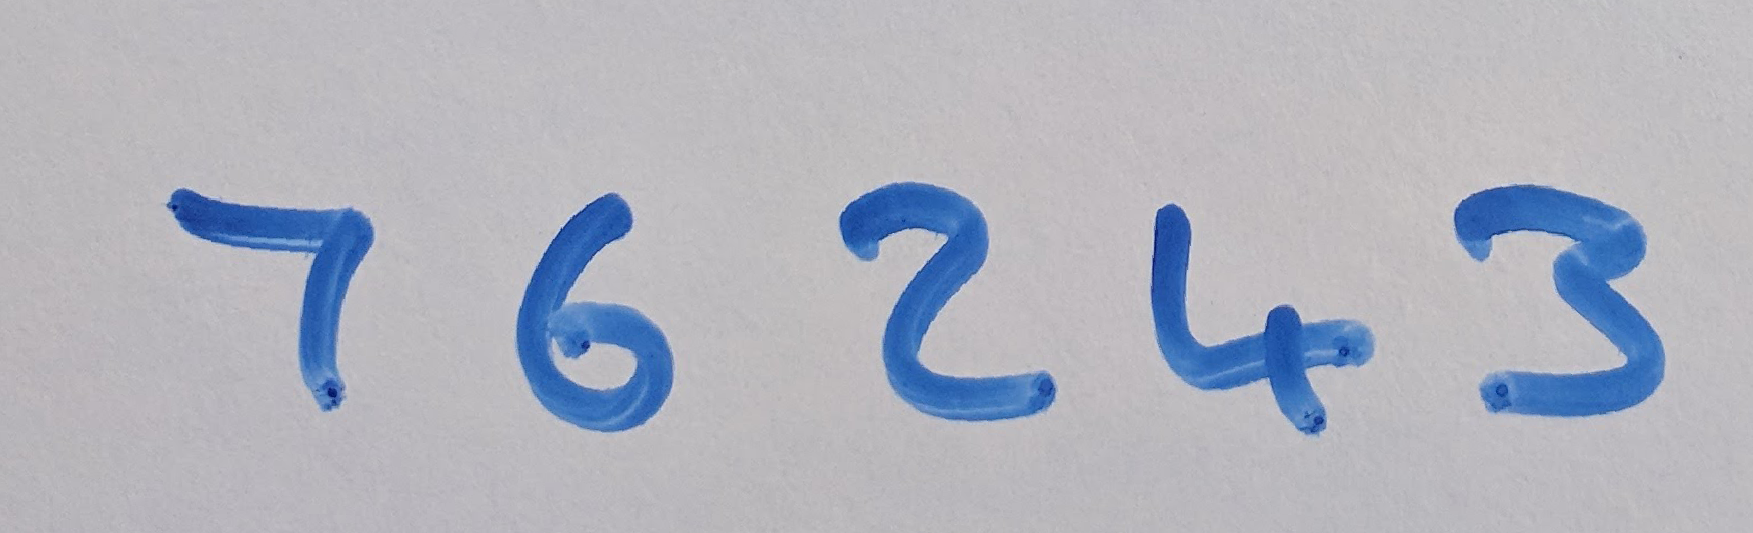 7 6 2 4 3